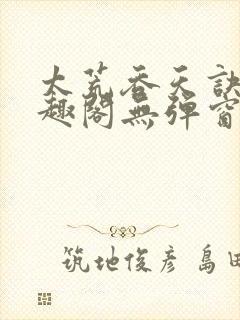 大荒吞天訣
趣閣無彈窗
筑地俊彥 島田